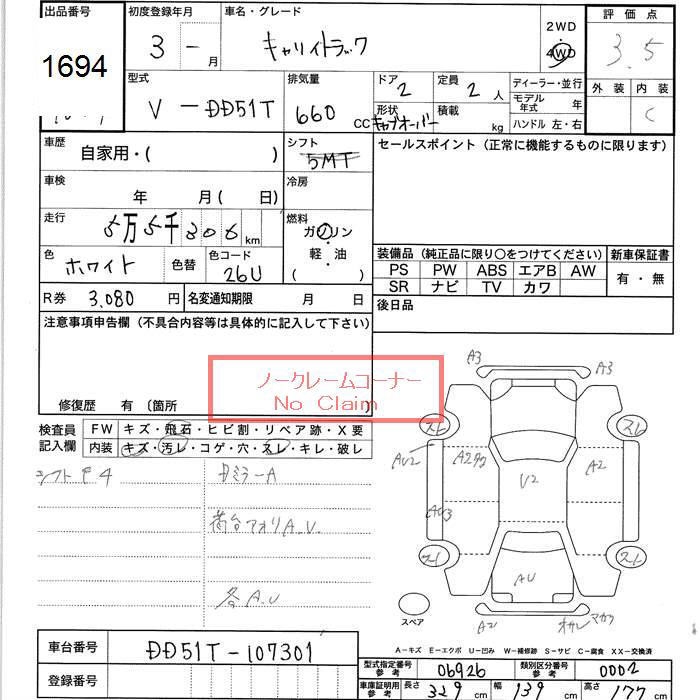 出品番号 初度登録年月 車名・グレード 評価点
1694 3 - 月 キャリイトラック 2WD・4WD 3.5
外装 内装
C
型式 排気量 ドア 定員 ディーラー・並行
V - DD51T 660 CC 2 2 人 モデル年式 年
形状 積載 ハンドル 左・右
キャブオーバー kg
車歴 シフト セールスポイント (正常に機能するものに限ります)
自家用・( ) 5MT
車検 冷房
年 月( 日)
走行 燃料
5万5千306 km ガソリン・軽油
( )
色 色替 色コード
ホワイト 26U
装備品 (純正品に限り○をつけてください) 新車保証書
PS PW ABS エアB AW 有・無
SR ナビ TV カワ
R券 3,080 円 名変通知期限 月 日 後日品
注意事項申告欄 (不具合内容等は具体的に記入して下さい)
ノークレームコーナー
No Claim
修復歴 有 〔箇所 〕
検査員記入欄 FW キズ・飛石・ヒビ割・リペア跡・X要
内装 キズ・汚レ・コゲ・穴・スレ・キレ・破レ
シフト
DミラーA
荷台アオリA.U.
各A.U
A3 A3
スレ スレ
AU2 A2 U2 A2
AU3
スレ スレ
AU
スペア A2
A-キズ E-エクボ U-凹み W-補修跡 S-サビ C-腐食 XX-交換済
車台番号 DD51T-107301
登録番号
型式指定番号 参考 06926 類別区分番号 参考 0002
車庫証明用 参考 長さ 329 cm 幅 139 cm 高さ 177 cm